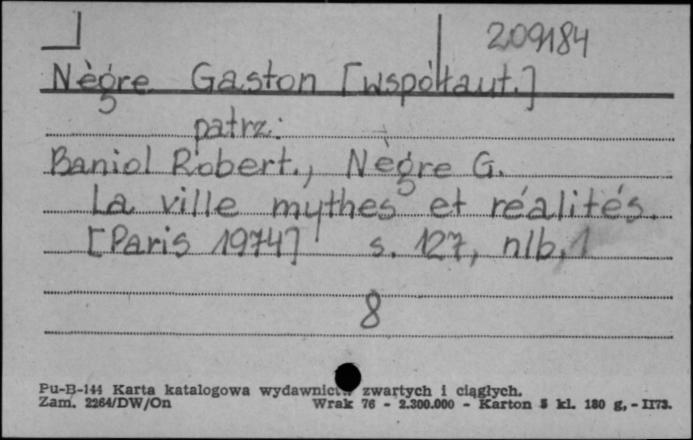 209184
Nègre Gaston [współaut.]
patrz:
Baniol Robert., Nègre G.
La ville mythes et réalités.
[Paris 1974] s. 127, nlb, 1
8
Pu-B-144 Karta katalogowa wydawnictw zwartych i ciągłych.
Zam. 2264/DW/On Wrak 76 - 2.300.000 - Karton 5 kl. 180 g, - II73.